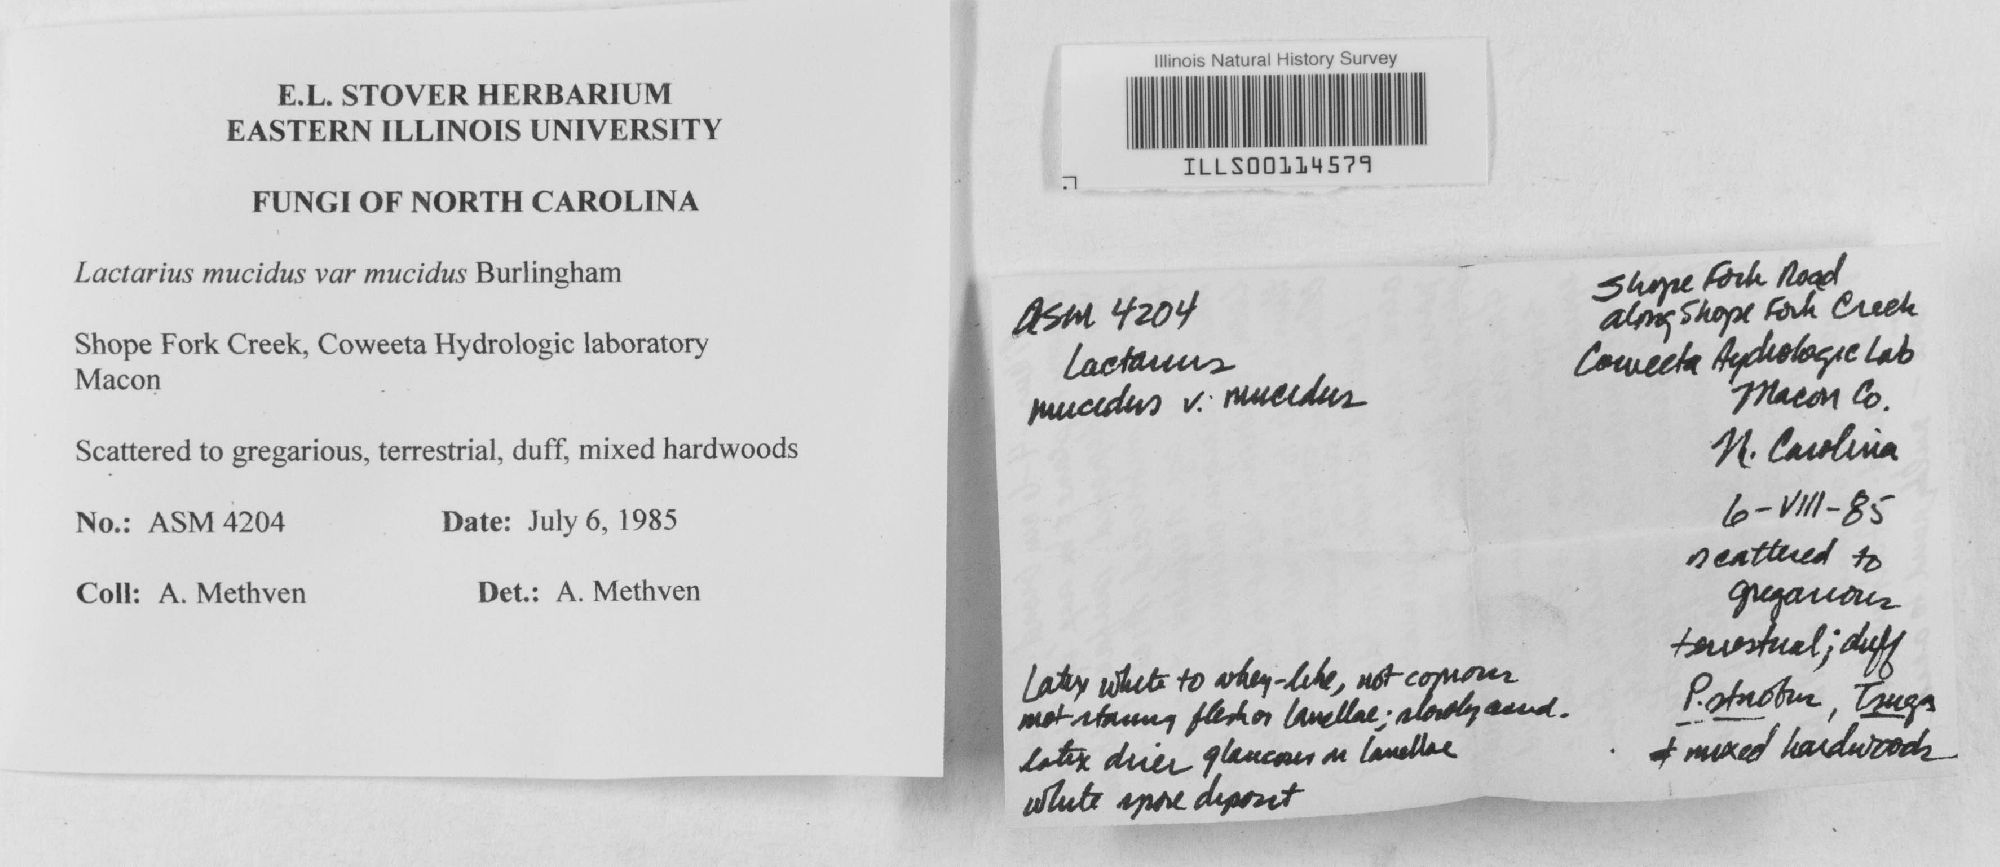 E.L. STOVER HERBARIUM
EASTERN ILLINOIS UNIVERSITY
FUNGI OF NORTH CAROLINA
Lactarius mucidus var mucidus Burlingham
Shope Fork Creek, Coweeta Hydrologic laboratory
Macon
Scattered to gregarious, terrestrial, duff, mixed hardwoods
No.: ASM 4204 Date: July 6, 1985
Coll: A. Methven Det.: A. Methven
Illinois Natural History Survey
ILLS00114579
ASM 4204
Lactarius
mucidus v. mucidus
Latex white to whey-like, not copious
not staining flesh or lamellae; slowly acrid.
latex dries glaucous on lamellae
white spore deposit
Shope Fork Road
along Shope Fork Creek
Coweeta Hydrologic Lab
Macon Co.
N. Carolina
6-VIII-85
scattered to
gregarious
terrestrial; duff
P. strobus, Tsuga
+ mixed hardwoods